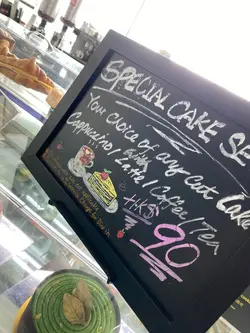 SPECIAL CAKE SE
Your choice of any Cut Cake
Cappuccino / Latte / Coffee / Tea
HK$
90